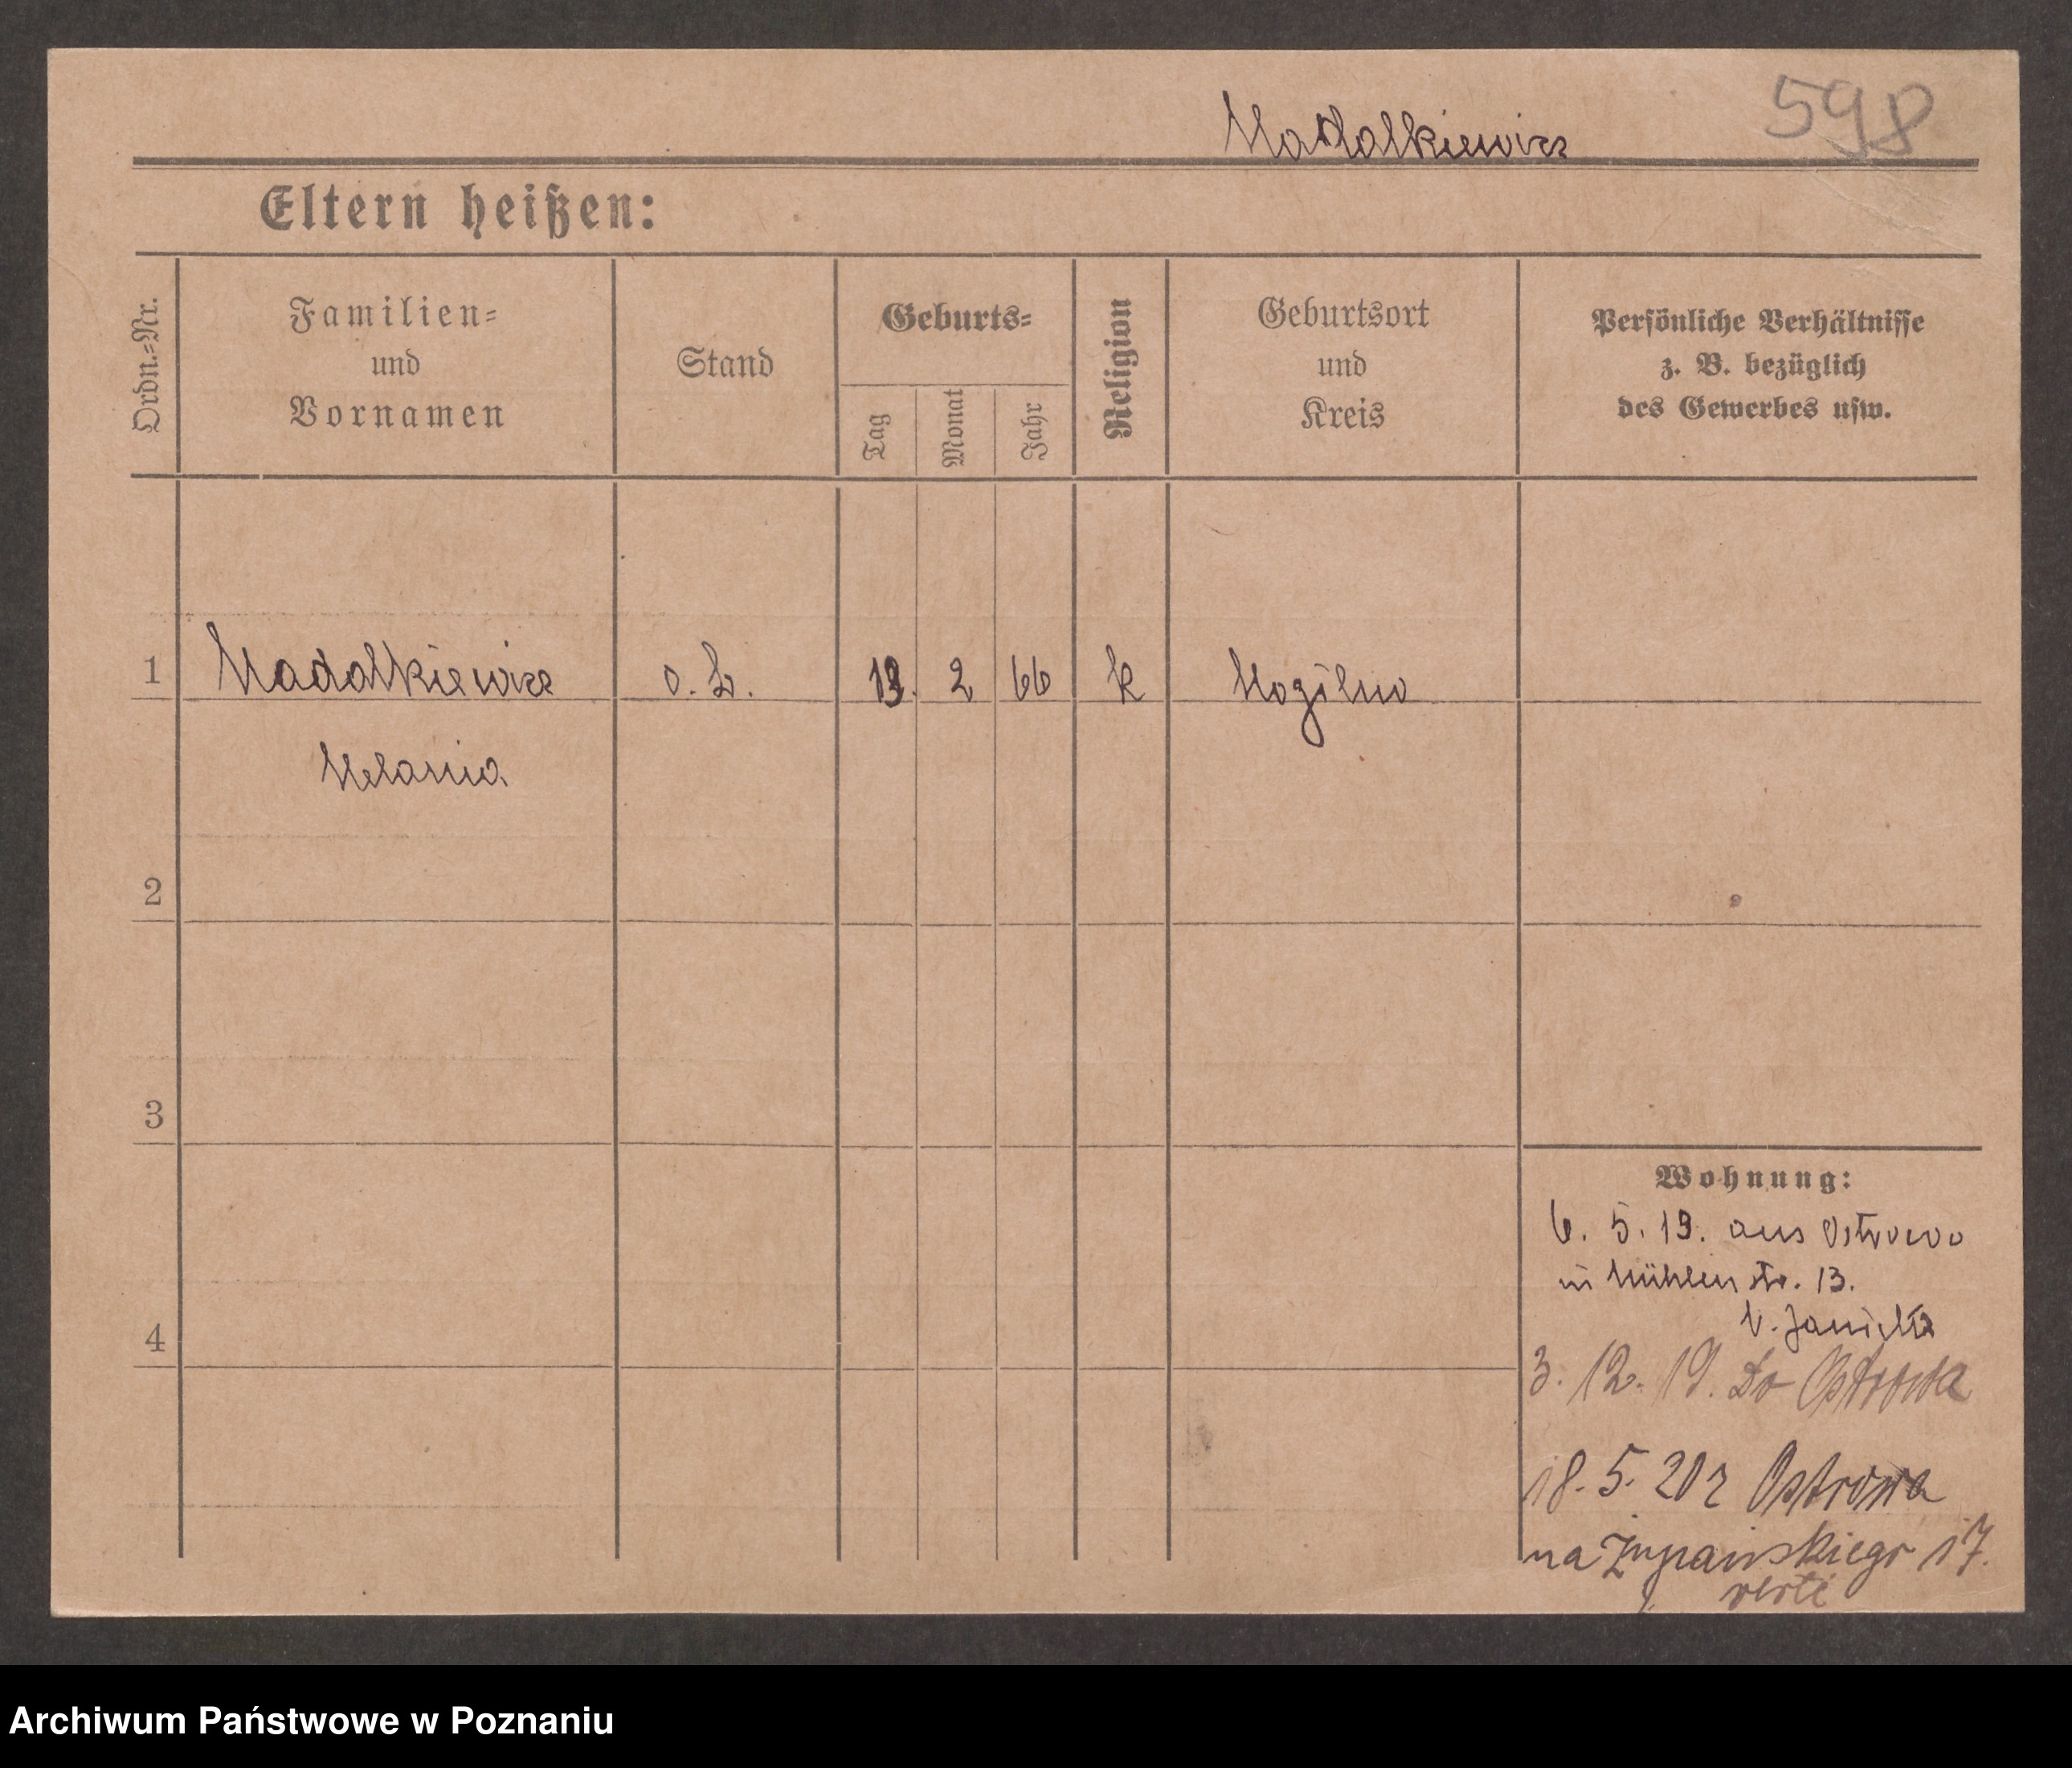 Madalkiewicz
598
Eltern heißen:
Ordn.-Nr.
Familien-
und
Vornamen
Stand
Geburts-
Tag
Monat
Jahr
Religion
Geburtsort
und
Kreis
Persönliche Verhältnisse
z. B. bezüglich
des Gewerbes usw.
1 Madalkiewicz o. B. 13. 2 66 k Mogilno
Melania
2
3
4
Wohnung:
6. 5. 19. aus Ostrowo
in Mühlenstr. 13.
b. Janicka
3. 12. 19. Do Ostrowa
18. 5. 20 z Ostrowa
na Żupańskiego 17.
verte
Archiwum Państwowe w Poznaniu